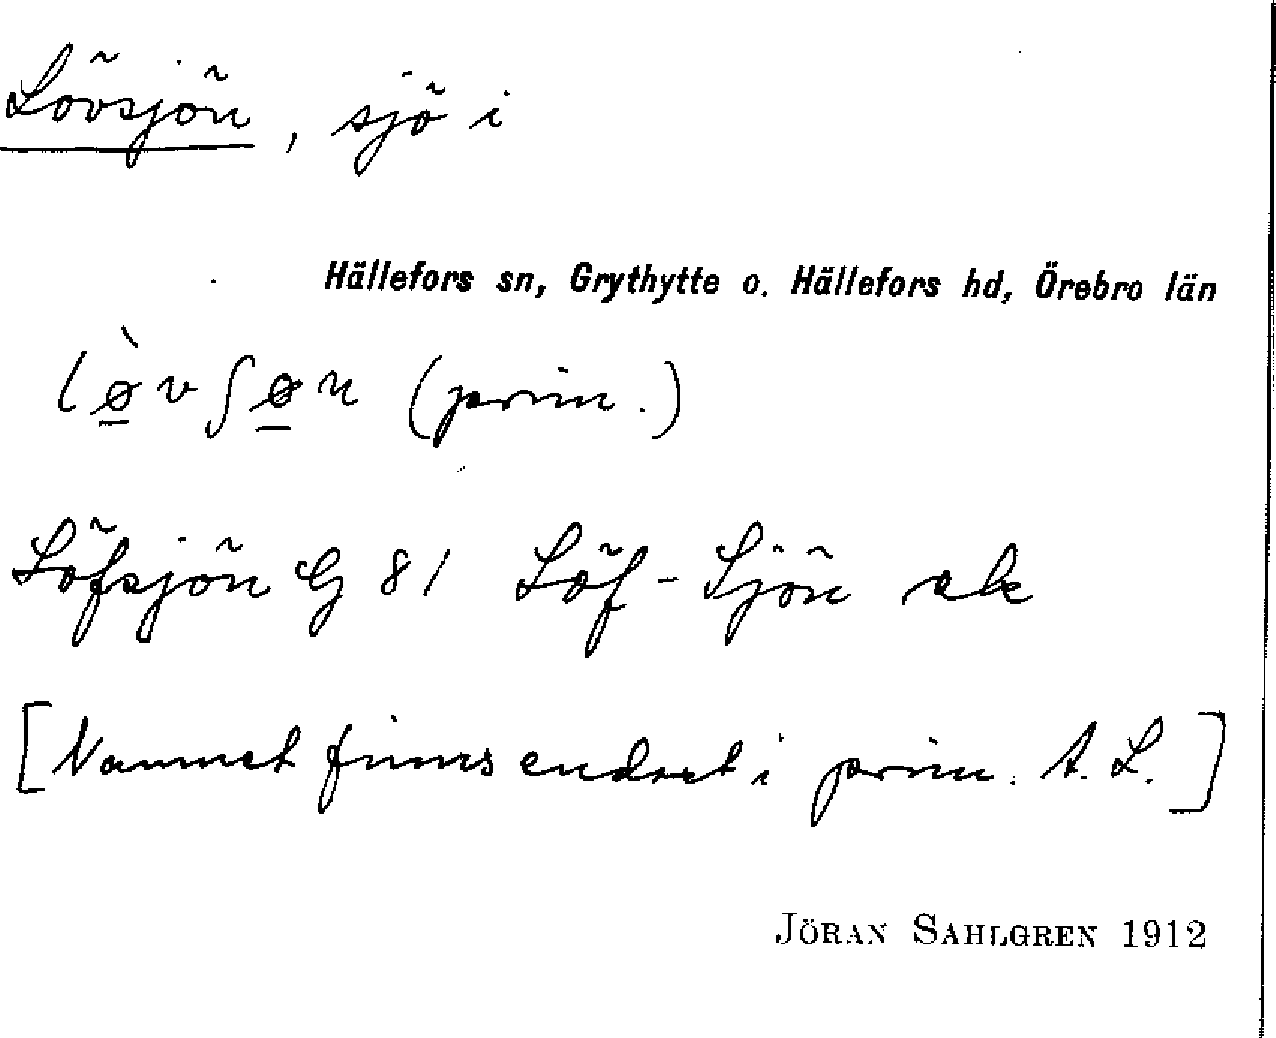 Lövsjön, sjö i
Hällefors sn, Grythytte o. Hällefors hd, Örebro län
lø̲̀vʃø̲n (prim.)
Löfsjön G 81 Löf-Sjön sk
[Namnet finns endast i prim. A. L.]
JÖRAN SAHLGREN 1912